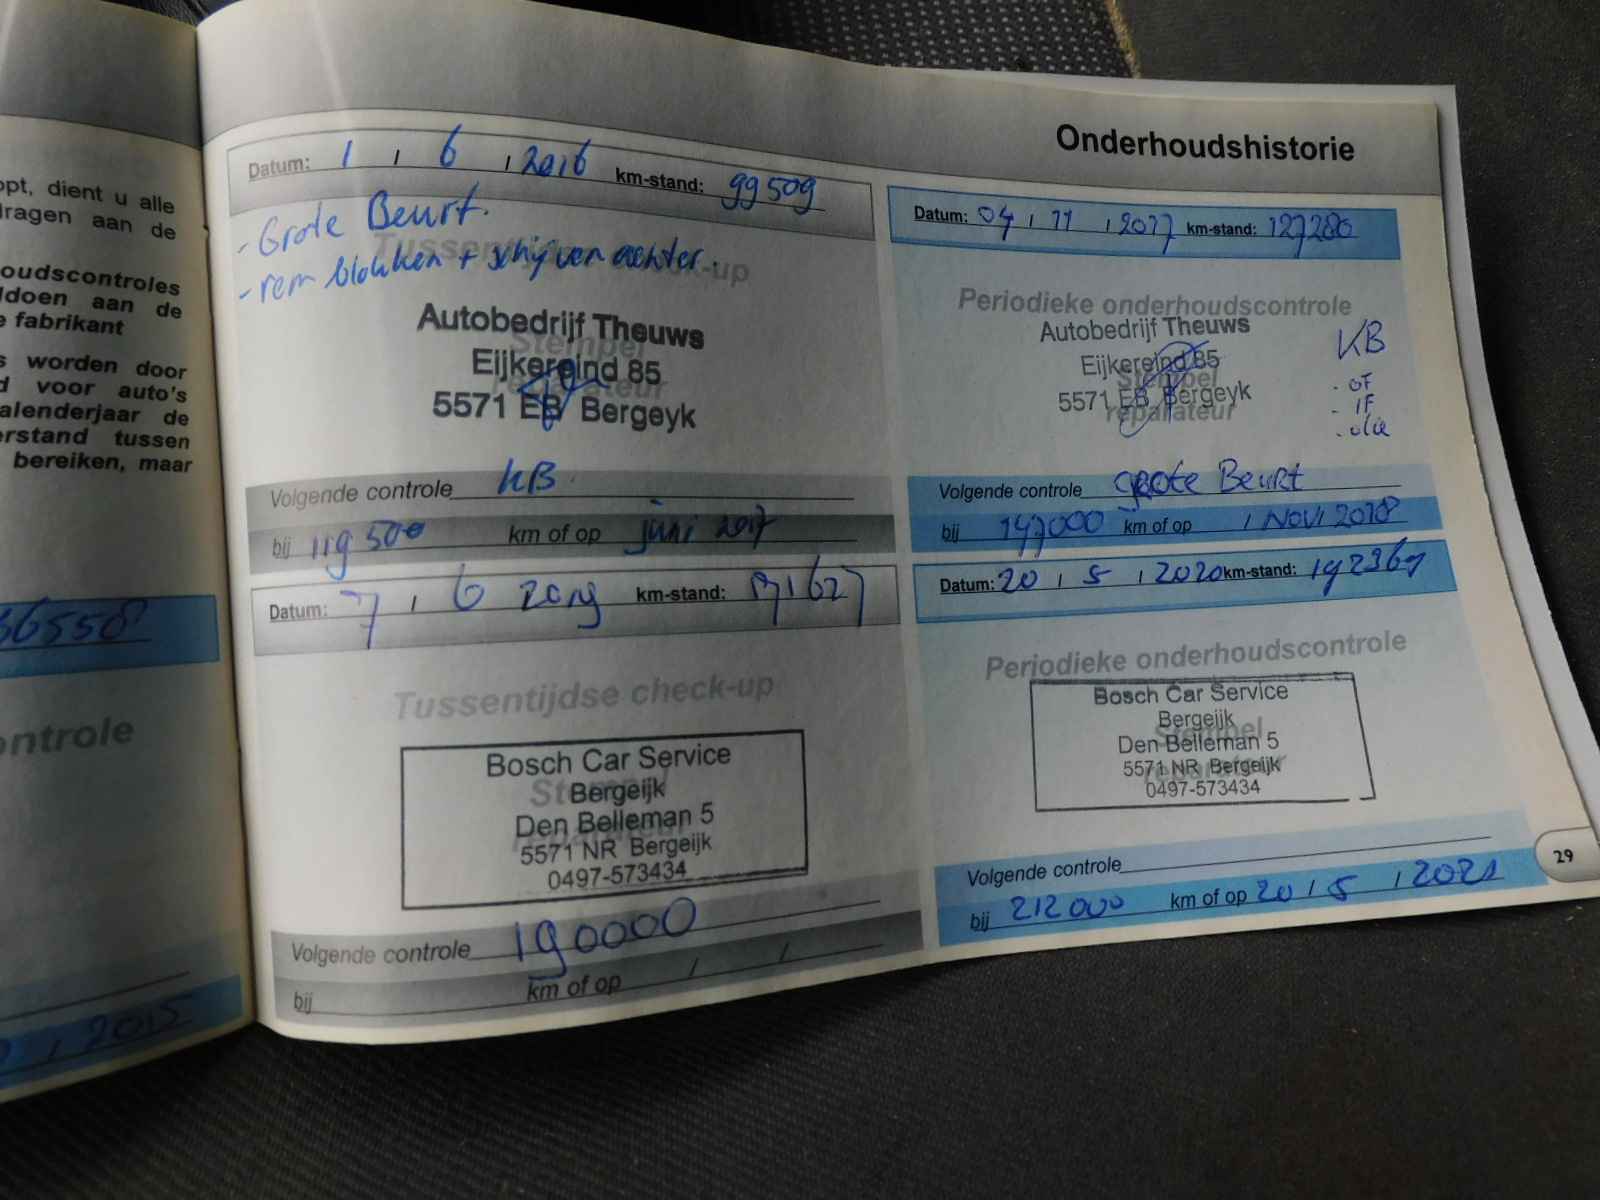 opt, dient u alle
dragen aan de
oudscontroles
ldoen aan de
e fabrikant
s worden door
d voor auto's
alenderjaar de
erstand tussen
bereiken, maar
36558
ontrole
2015
Onderhoudshistorie
Datum: 1 , 6 , 2016 km-stand: 99509
- Grote Beurt.
- rem blokken + schijven achter.
Tussentijdse check-up
Autobedrijf Theuws
Stempel
Eijkereind 85
reparateur
5571 EB Bergeyk
Volgende controle KB
bij 119500 km of op juni 2017
Datum: 04 , 11 , 2017 km-stand: 127280
Periodieke onderhoudscontrole
Autobedrijf Theuws
Eijkereind 85
Stempel
5571 EB Bergeyk
reparateur
KB
- OF
- IF
- olie
Volgende controle grote Beurt
bij 147000 km of op / Nov / 2018
Datum: 7 , 6 2019 km-stand: 171627
Tussentijdse check-up
Bosch Car Service
Stempel
Bergeijk
Den Belleman 5
reparateur
5571 NR Bergeijk
0497-573434
Volgende controle 190000
bij km of op / /
Datum: 20 , 5 , 2020 km-stand: 192367
Periodieke onderhoudscontrole
Bosch Car Service
Bergeijk
Stempel
Den Belleman 5
5571 NR Bergeijk
reparateur
0497-573434
Volgende controle
bij 212000 km of op 20 / 5 , 2021
29